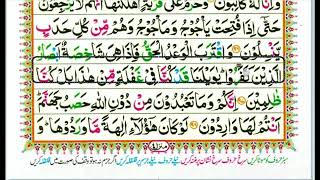 وَاِنَّا لَهٗ كٰتِبُوْنَ وَحَرٰمٌ عَلٰى قَرْيَةٍ اَهْلَكْنٰهَاۤ اَنَّهُمْ لَا يَرْجِعُوْنَ
حَتّٰۤى اِذَا فُتِحَتْ يَاْجُوْجُ وَمَاْجُوْجُ وَهُمْ مِّنْ كُلِّ حَدَبٍ
يَّنْسِلُوْنَ وَاقْتَرَبَ الْوَعْدُ الْحَقُّ فَاِذَا هِيَ شَاخِصَةٌ اَبْصَارُ
الَّذِيْنَ كَفَرُوْا يٰوَيْلَنَا قَدْ كُنَّا فِيْ غَفْلَةٍ مِّنْ هٰذَا بَلْ كُنَّا
ظٰلِمِيْنَ اِنَّكُمْ وَمَا تَعْبُدُوْنَ مِنْ دُوْنِ اللّٰهِ حَصَبُ جَهَنَّمَ
اَنْتُمْ لَهَا وٰرِدُوْنَ لَوْ كَانَ هٰۤؤُلَاۤءِ اٰلِهَةً مَّا وَرَدُوْهَا وَ